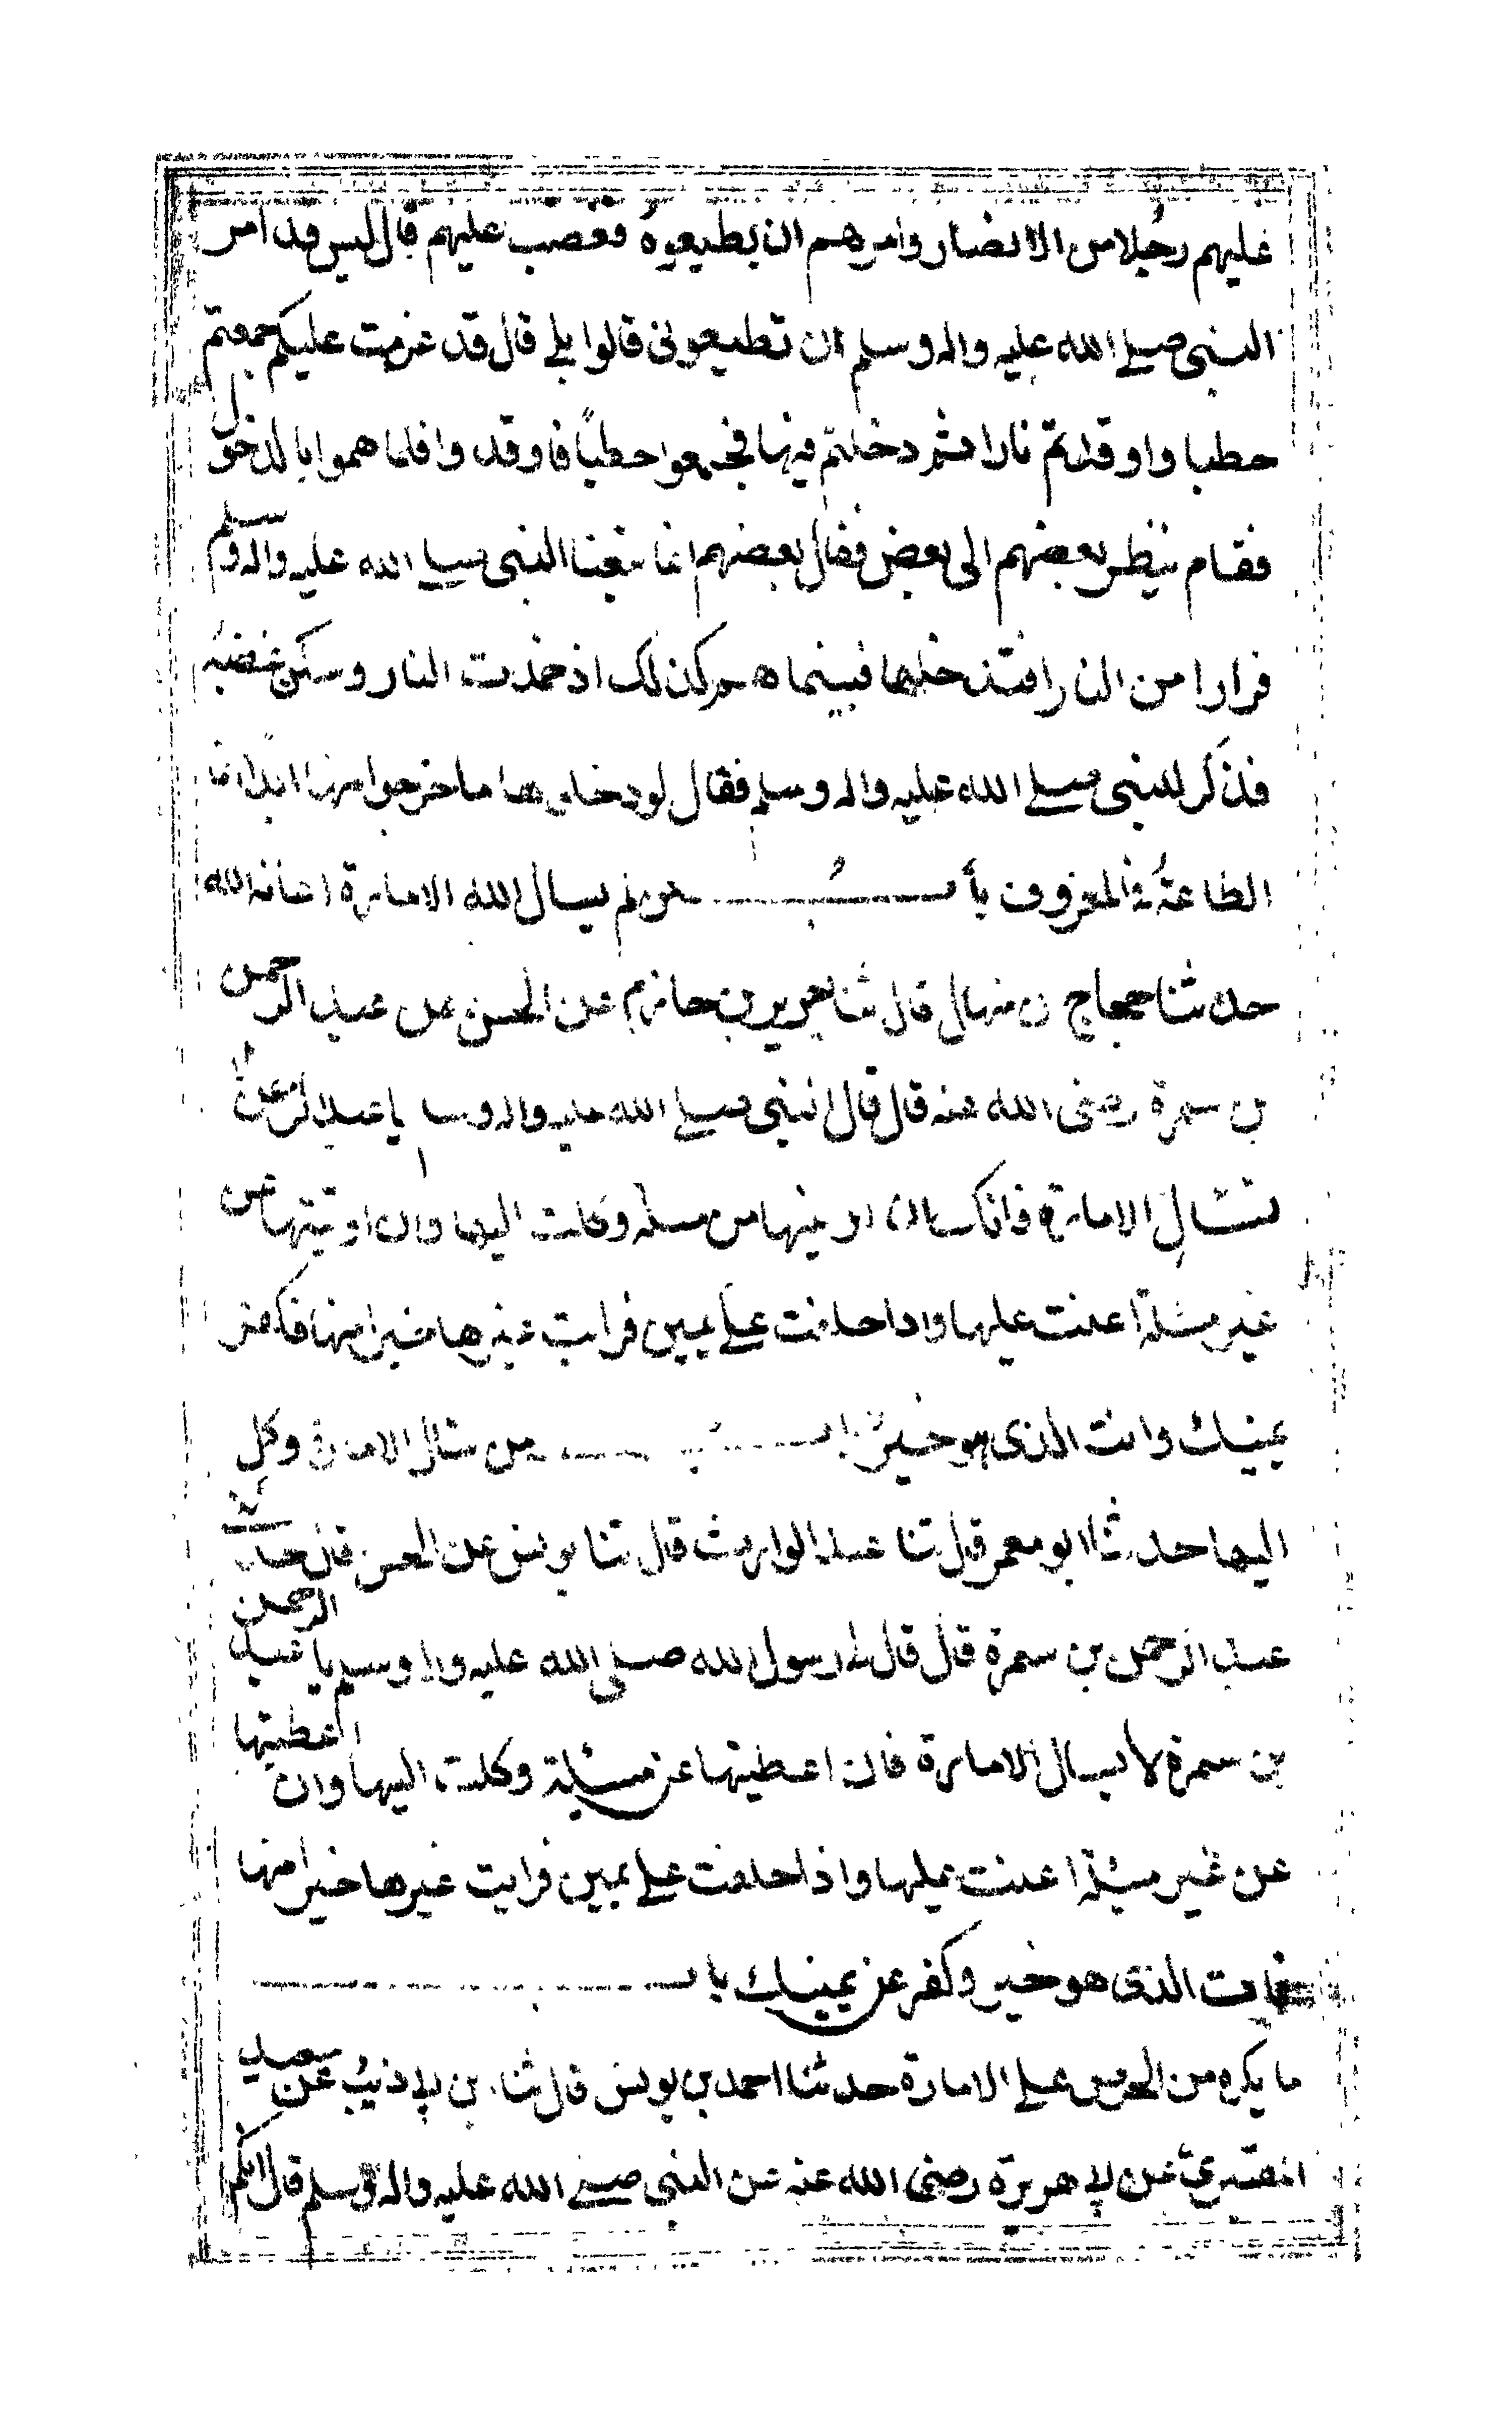 عليهم رجلا من الانصار وامرهم ان يطيعوه فغضب عليهم قال اليس قد امر
النبى صلى الله عليه واله وسلم ان تطيعونى قالوا بلى قال قد عزمت عليكم جمعتم
حطبا واوقدتم نارا ثم دخلتم فيها فجمعوا حطبًا فاوقدوا فلما هموا بالدخول
فقام ينظر بعضهم الى بعض فقال بعضهم انما تبعنا النبى صلى الله عليه واله وسلم
فرارا من النار افتدخلها فبينما هم كذلك اذ خمدت النار وسكن غضبه
فذكر للنبى صلى الله عليه واله وسلم فقال لو دخلوها ما خرجوا منها ابدا انما
الطاعة فى المعروف باب من لم يسال الله الامارة اعانه الله
حدثنا حجاج بن منهال قال ثنا جرير بن حازم عن الحسن عن عبد الرحمن
بن سمرة رضى الله عنه قال قال النبى صلى الله عليه واله وسلم يا عبد الرحمن لا
تسال الامارة فانك ان اوتيتها من مسئلة وكلت اليها وان اوتيتها من
غير مسئلة اعنت عليها واذا حلفت على يمين فرايت غيرها خيرا منها فكفر
يمينك وائت الذى هو خير باب من سال الامارة وكل
اليها حدثنا ابو معمر قال ثنا عبد الوارث قال ثنا يونس عن الحسن قال حدثنى
عبد الرحمن بن سمرة قال قال لى رسول الله صلى الله عليه واله وسلم يا عبد الرحمن
بن سمرة لا تسال الامارة فان اعطيتها عن مسئلة وكلت اليها وان اعطيتها
عن غير مسئلة اعنت عليها واذا حلفت على يمين فرايت غيرها خيرا منها
فات الذى هو خير وكفر عن يمينك باب
ما يكره من الحرص على الامارة حدثنا احمد بن يونس قال ثنا بن ابى ذئب عن سعيد
المقبرى عن ابى هريرة رضى الله عنه عن النبى صلى الله عليه واله وسلم قال انكم